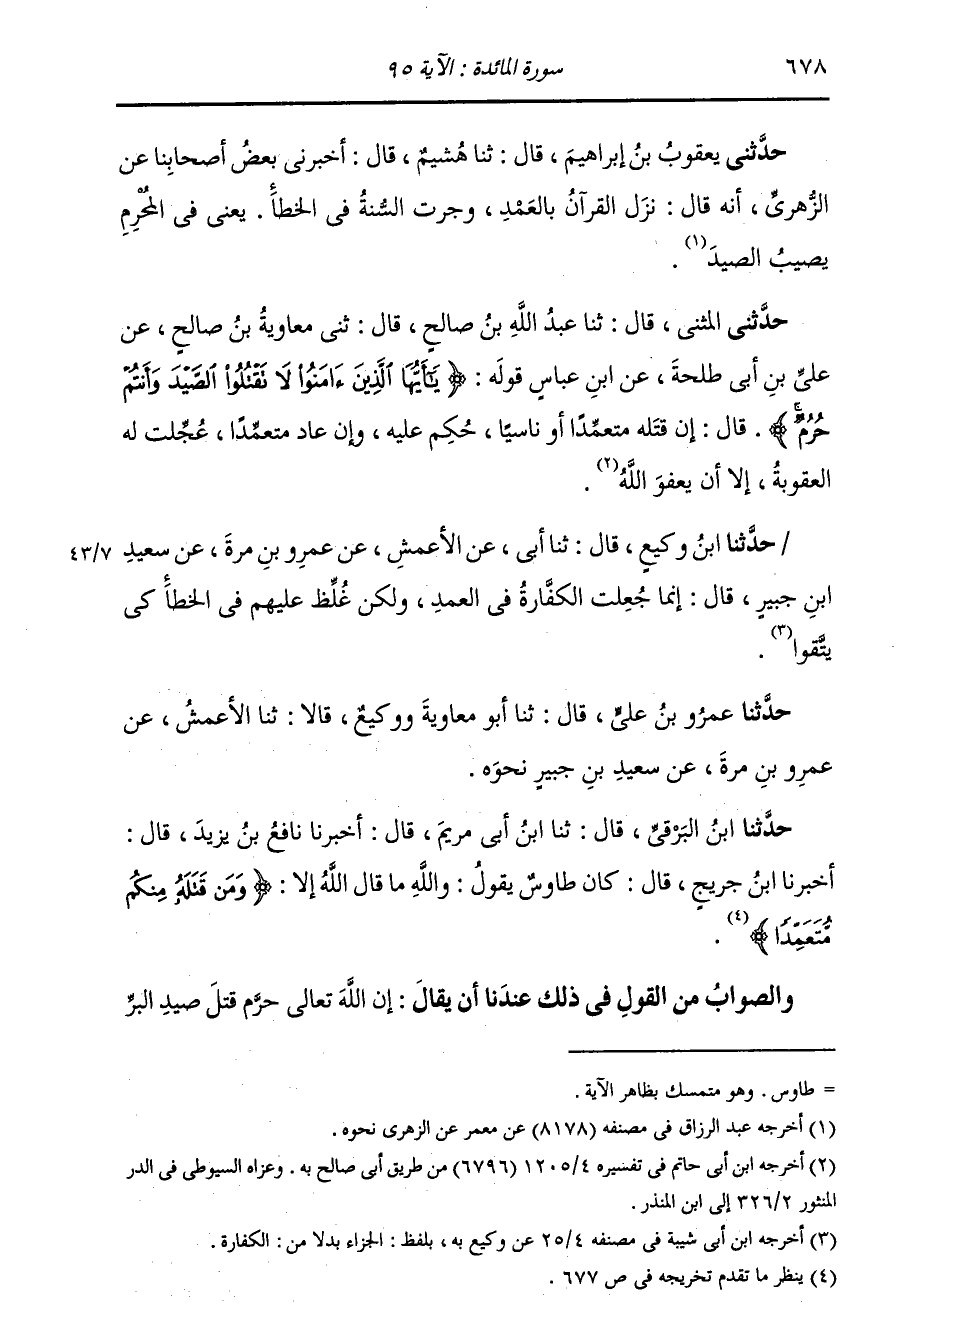 ٦٧٨
سورة المائدة : الآية ٩٥
حدَّثنى يعقوبُ بنُ إبراهيمَ ، قال : ثنا هُشيمٌ ، قال : أخبرنى بعضُ أصحابِنا عن
الزُّهرىِّ ، أنه قال : نزَل القرآنُ بالعَمْدِ ، وجرت السُّنةُ فى الخطأَ . يعنى فى المُحْرِمِ
يصيبُ الصيدَ(١) .
حدَّثنى المثنى ، قال : ثنا عبدُ اللَّهِ بنُ صالحٍ ، قال : ثنى معاويةُ بنُ صالحٍ ، عن
علىِّ بنِ أبى طلحةَ ، عن ابنِ عباسٍ قولَه : ﴿ يَٰٓأَيُّهَا ٱلَّذِينَ ءَامَنُوا۟ لَا نَقْتُلُوا۟ ٱلصَّيْدَ وَأَنتُمْ
حُرُمٌ ۚ ﴾ . قال : إن قتَله متعمِّدًا أو ناسيًا ، حُكِم عليه ، وإن عاد متعمِّدًا ، عُجِّلت له
العقوبةُ ، إلا أن يعفوَ اللَّهُ(٢) .
/ حدَّثنا ابنُ وكيعٍ ، قال : ثنا أبى ، عن الأعمشِ ، عن عمرِو بنِ مرةَ ، عن سعيدِ ٤٣/٧
ابنِ جبيرٍ ، قال : إنما جُعِلت الكفَّارةُ فى العمدِ ، ولكن غُلِّظ عليهم فى الخطأَ كى
يتَّقوا(٣) .
حدَّثنا عمرُو بنُ علىٍّ ، قال : ثنا أبو معاويةَ ووكيعٌ ، قالا : ثنا الأعمشُ ، عن
عمرِو بنِ مرةَ ، عن سعيدِ بنِ جبيرٍ نحوَه .
حدَّثنا ابنُ البَرْقىِّ ، قال : ثنا ابنُ أبى مريمَ ، قال : أخبرنا نافعُ بنُ يزيدَ ، قال :
أخبرنا ابنُ جريجٍ ، قال : كان طاوسٌ يقولُ : واللَّهِ ما قال اللَّهُ إلا : ﴿ وَمَن قَتَلَهُۥ مِنكُم
مُّتَعَمِّدًا ﴾(٤) .
والصوابُ من القولِ فى ذلك عندَنا أن يقالَ : إن اللَّهَ تعالى حرَّم قتلَ صيدِ البرِّ
= طاوس . وهو متمسك بظاهر الآية .
(١) أخرجه عبد الرزاق فى مصنفه (٨١٧٨) عن معمر عن الزهرى نحوه .
(٢) أخرجه ابن أبى حاتم فى تفسيره ١٢٠٥/٤ (٦٧٩٦) من طريق أبى صالح به . وعزاه السيوطى فى الدر
المنثور ٣٢٦/٢ إلى ابن المنذر .
(٣) أخرجه ابن أبى شيبة فى مصنفه ٢٥/٤ عن وكيع به ، بلفظ : الجزاء بدلا من : الكفارة .
(٤) ينظر ما تقدم تخريجه فى ص ٦٧٧ .